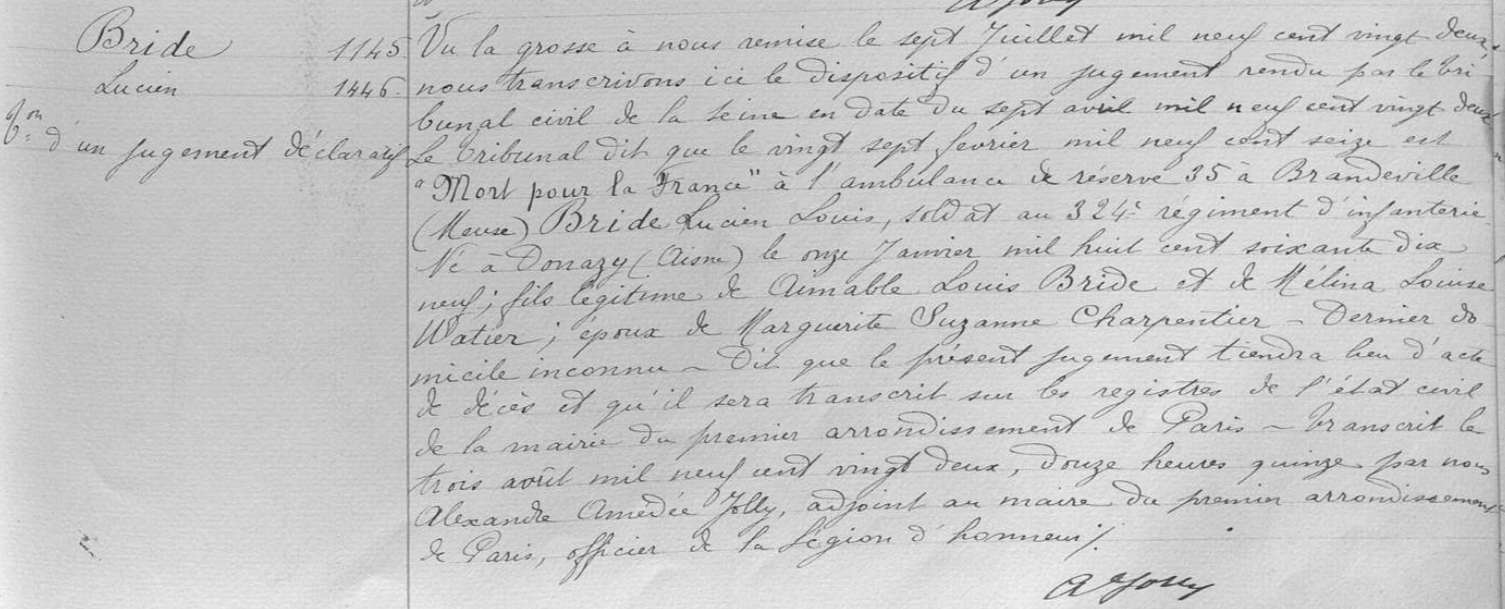 Bride 1145
Lucien 1446
Ton d'un jugement déclaratif
Vu la grosse à nous remise le sept Juillet mil neuf cent vingt deux,
nous transcrivons ici le dispositif d'un jugement rendu par le tri
bunal civil de la Seine en date du sept avril mil neuf cent vingt deux
Le tribunal dit que le vingt sept février mil neuf cent seize est
"Mort pour la France" à l'ambulance de réserve 35 à Brandeville
(Meuse) Bride Lucien Louis, soldat au 324e régiment d'infanterie
Né à Donazy (Aisne) le onze Janvier mil huit cent soixante dix
neuf; fils légitime de Aimable Louis Bride et de Mélina Louise
Watier; époux de Marguerite Suzanne Charpentier – Dernier do
micile inconnu – Dit que le présent jugement tiendra lieu d'acte
de décès et qu'il sera transcrit sur les registres de l'état civil
de la mairie du premier arrondissement de Paris – Transcrit le
trois août mil neuf cent vingt deux, douze heures quinze par nous
Alexandre Amédée Jolly, adjoint au maire du premier arrondissement
de Paris, officier de la Légion d'honneur/.
AeJolly